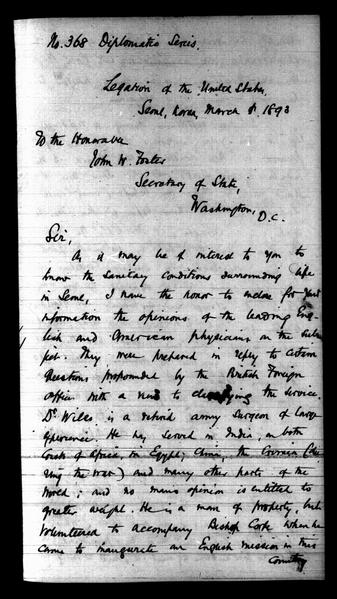 No. 368 Diplomatic Series.
Legation of the United States,
Seoul, Korea, March 8, 1893
To the Honorable
John W. Foster
Secretary of State,
Washington,
D.C.
Sir,
As it may be of interest to you to
know the sanitary conditions surrounding life
in Seoul, I have the honor to enclose for your
information the opinions of the leading Eng-
lish and American physicians on the sub-
ject. They were prepared in reply to certain
questions propounded by the British Foreign
Office with a view to classifying the service.
Dr Wiles is a retired army surgeon of large
experience. He has served in India, on both
Coasts of Africa, in Egypt, China, the Crimea (du-
ring the War) and many other parts of the
World; and no mans opinion is entitled to
greater weight. He is a man of property, but
volunteered to accompany Bishop Corfe when he
came to inaugurate an English mission in this
Country